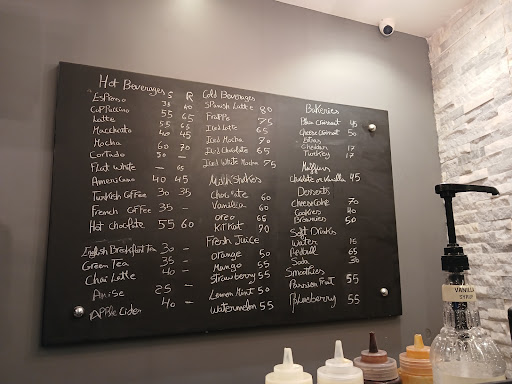 Hot Beverages S R
Espresso 35 40
Cappuccino 55 65
Latte 55 65
Macchiato 40 45
Mocha 60 70
Cortado 50 -
Flat White - 65
Americano 40 45
Turkish Coffee 30 35
French Coffee 35 -
Hot Chocolate 55 60
English Breakfast Tea 30 -
Green Tea 35 -
Chai Latte 40 -
Anise 25 -
Apple Cider 40 -
Cold Beverages
Spanish Latte 80
Frappe 75
Iced Latte 65
Iced Mocha 70
Iced Chocolate 65
Iced White Mocha 75
Milkshakes
Chocolate 60
Vanilla 60
Oreo 65
Kitkat 70
Fresh Juice
Orange 50
Mango 65
Strawberry 55
Lemon Mint 50
Watermelon 55
Bakeries
Plain Croissant 45
Cheese Croissant 50
Cheddar 17
Turkey 17
Muffins
Chocolate or Vanilla 45
Desserts
Cheesecake 70
Cookies 40
Brownies 50
Soft Drinks
Water 15
Redbull 65
Soda 30
Smoothies
Passion Fruit 55
Blueberry 55
VANILLA
SYRUP